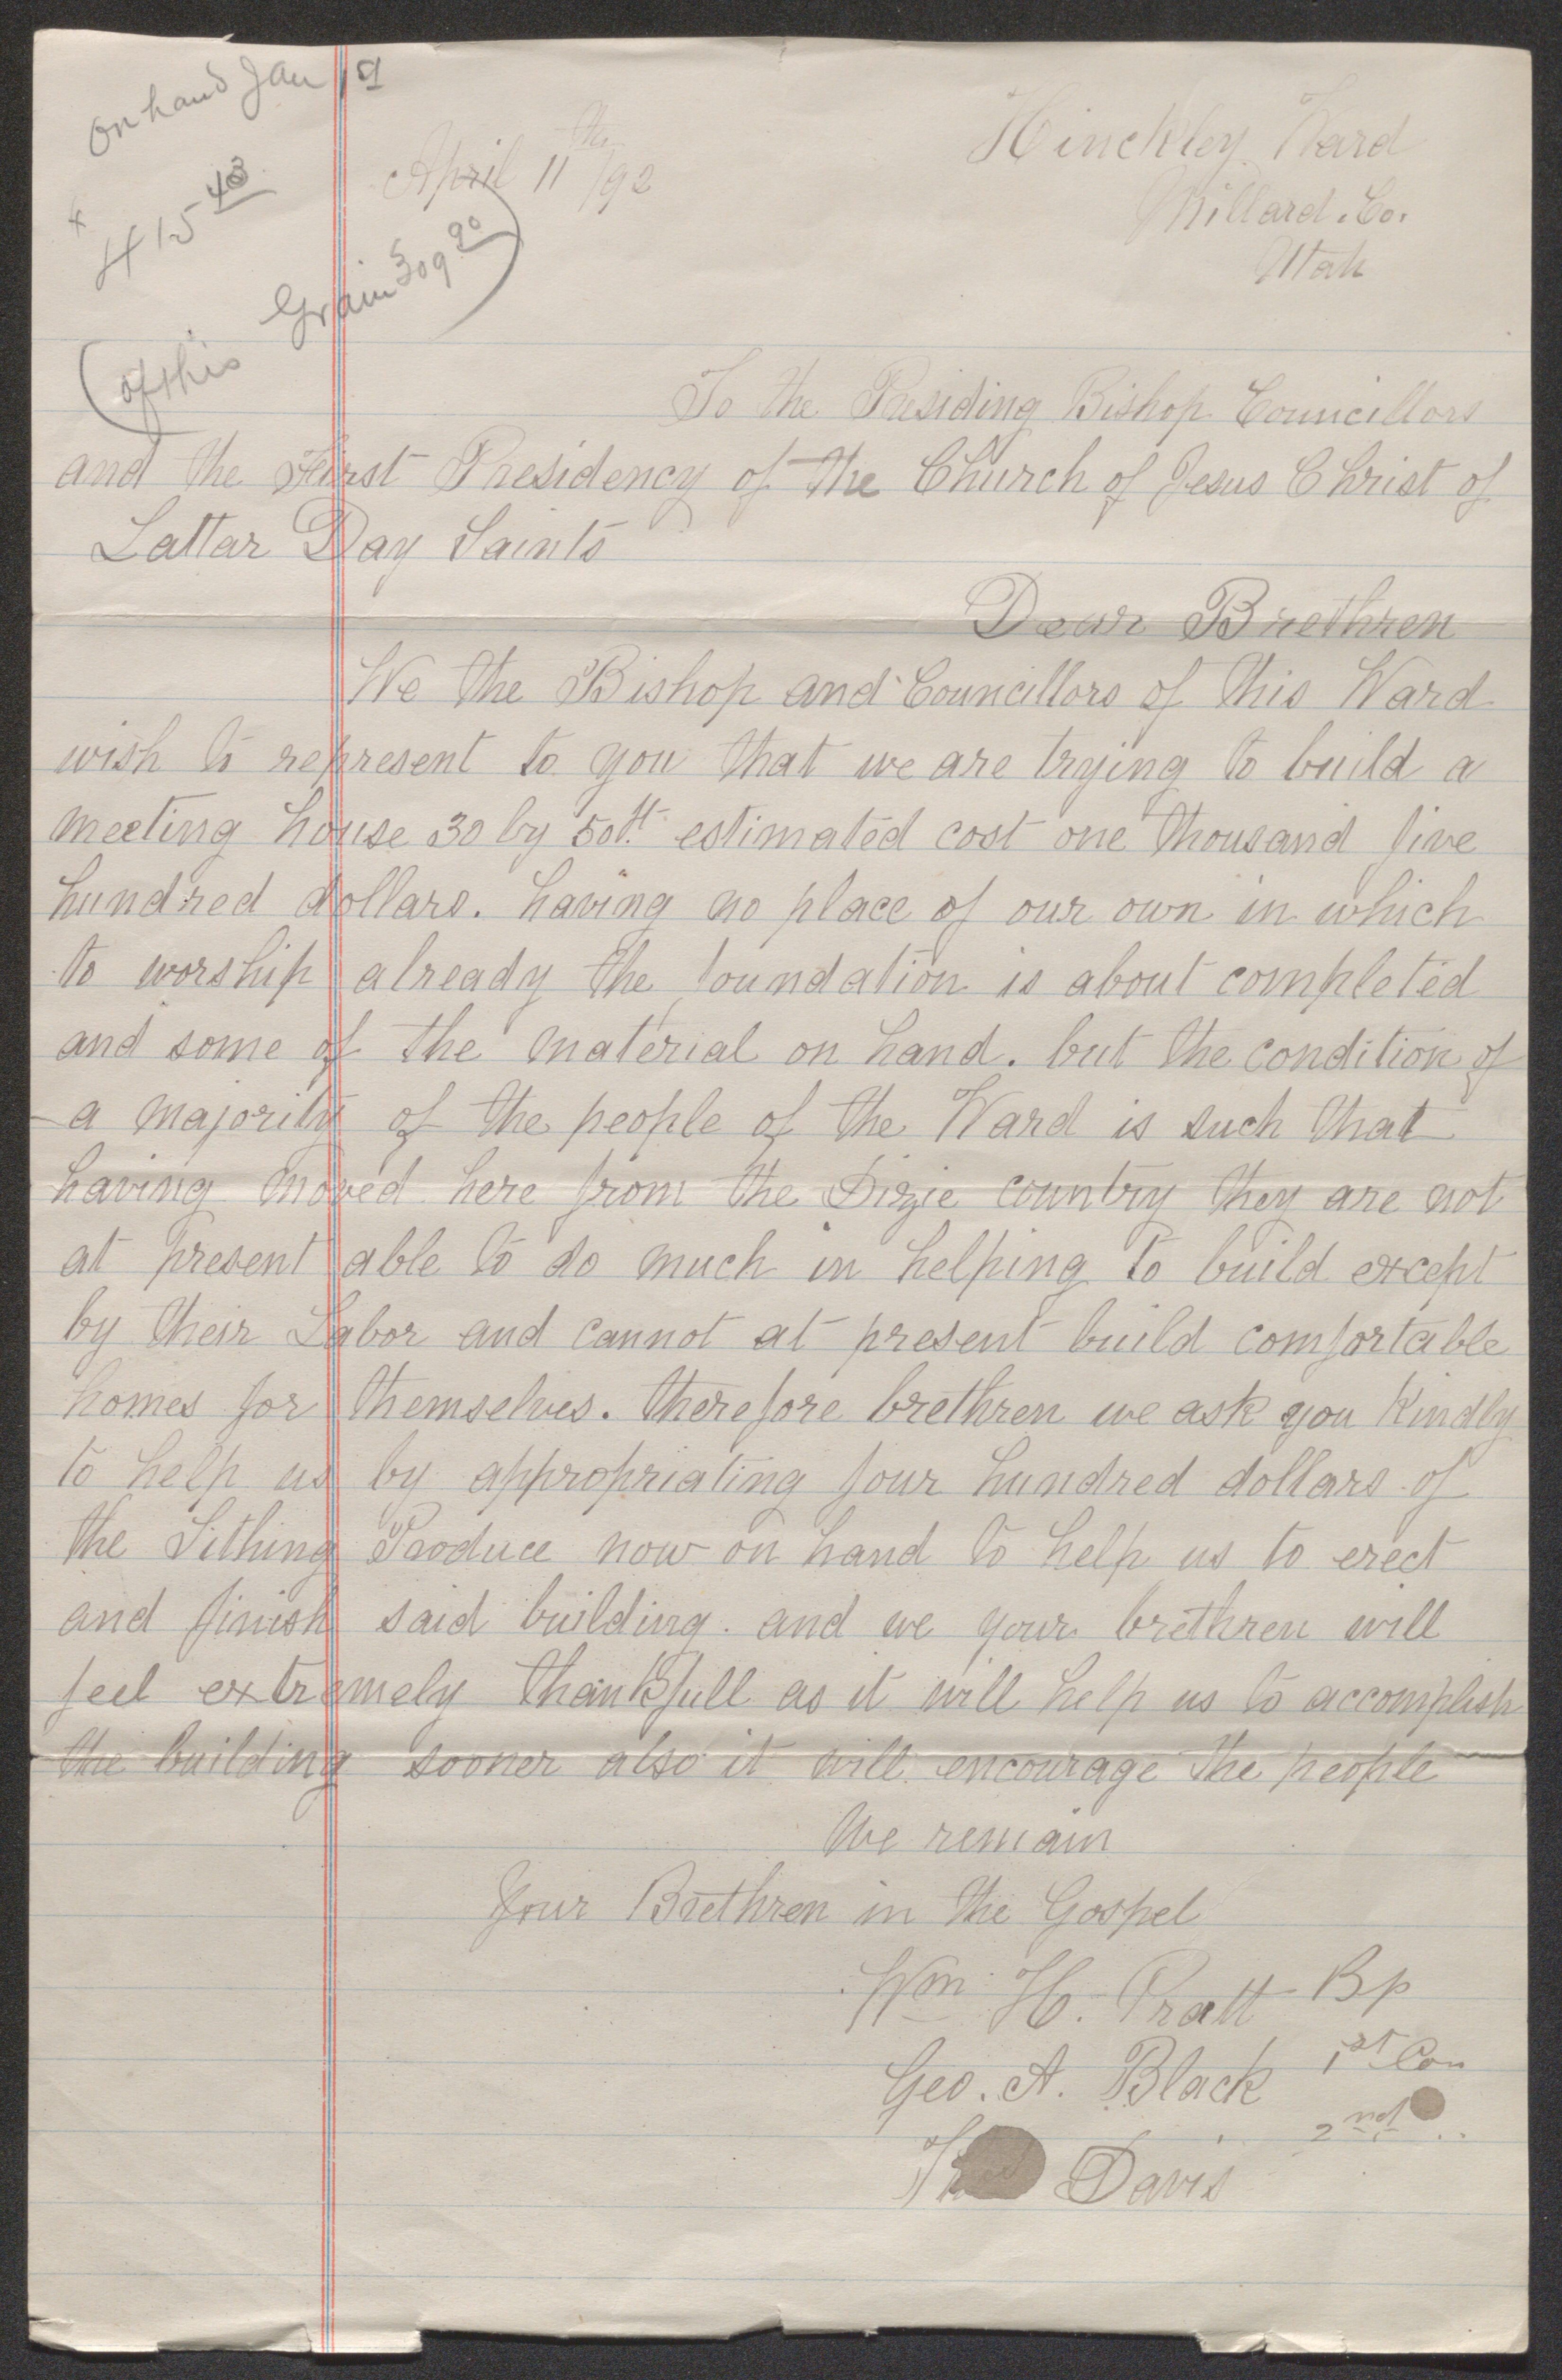 on hand Jan 1st
$ 415 43
(of this Grain 309 90)
April 11th /92
Hinckley Ward
Millard. Co.
Utah
To the Presiding Bishop Councillors
and the First Presidency of the Church of Jesus Christ of
Lattar Day Saints
Dear Brethren
We the Bishop and Councillors of this Ward
wish to represent to you that we are trying to build a
meeting house 30 by 50ft. estimated cost one thousand five
hundred dollars. having no place of our own in which
to worship already the foundation is about completed
and some of the material on hand. but the condition of
a majority of the people of the Ward is such that
having moved here from the Dixie country they are not
at present able to do much in helping to build except
by their Labor and cannot at present build comfortable
homes for themselves. therefore brethren we ask you kindly
to help us by appropriating four hundred dollars of
the Tithing Produce now on hand to help us to erect
and finish said building. and we your brethren will
feel extremely thankfull as it will help us to accomplish
the building sooner also it will encourage the people
We remain
Your Brethren in the Gospel
Wm H. Pratt Bp
Geo. A. Black 1st Con
Davis 2nd ..